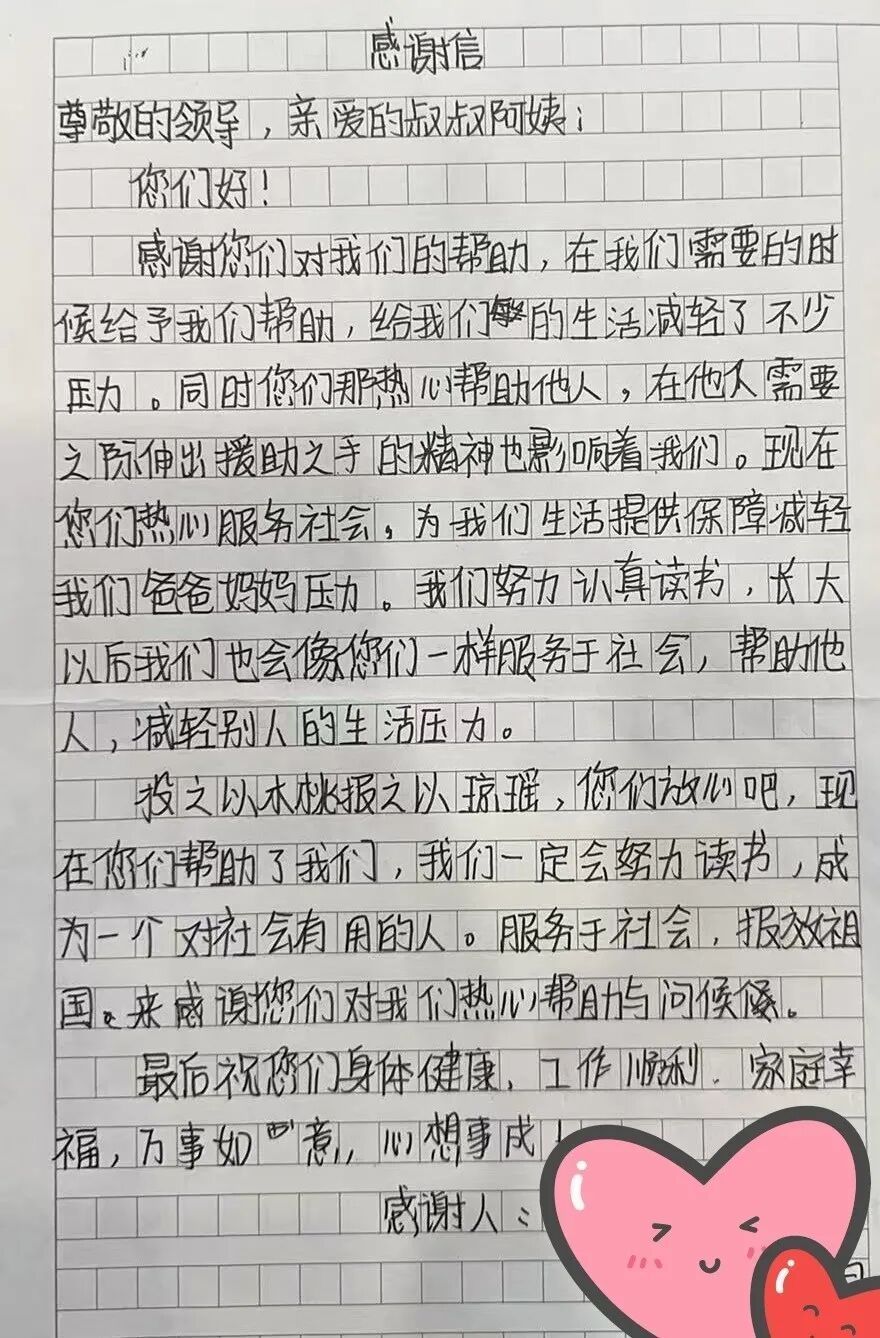 感谢信
尊敬的领导，亲爱的叔叔阿姨；
您们好！
感谢您们对我们的帮助，在我们需要的时
候给予我们帮助，给我们的生活减轻了不少
压力。同时您们那热心帮助他人，在他人需要
之际伸出援助之手的精神也影响着我们。现在
您们热心服务社会，为我们生活提供保障减轻
我们爸爸妈妈压力。我们努力认真读书，长大
以后我们也会像您们一样服务于社会，帮助他
人，减轻别人的生活压力。
投之以木桃报之以琼瑶，您们放心吧，现
在您们帮助了我们，我们一定会努力读书，成
为一个对社会有用的人。服务于社会，报效祖
国。来感谢您们对我们热心帮助与问候。
最后祝您们身体健康，工作顺利．家庭幸
福，万事如意，心想事成！
感谢人：